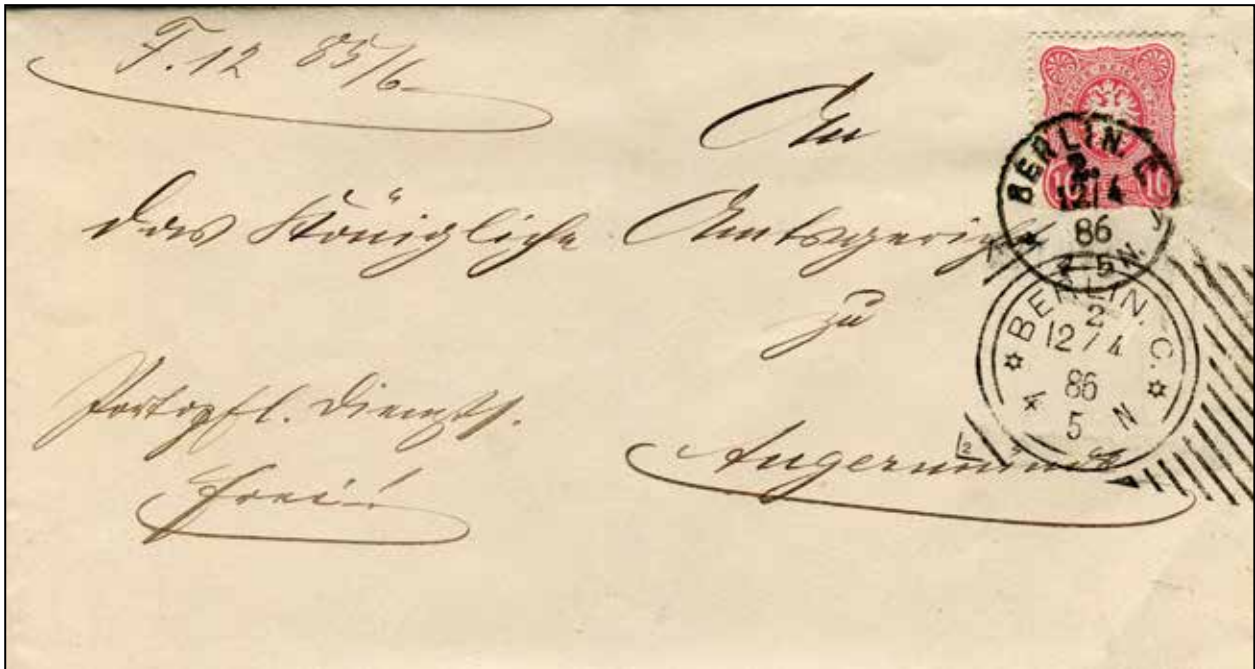 F. 12 85/6
An
das Königliche Amtsgericht
zu
Angermünde
Portopfl. Diensts.
frei!
REICH
10 10
BERLIN. C
2.
12/4
86
4-5N.
BERLIN. C.
2
12/4
86
4 5 N
2